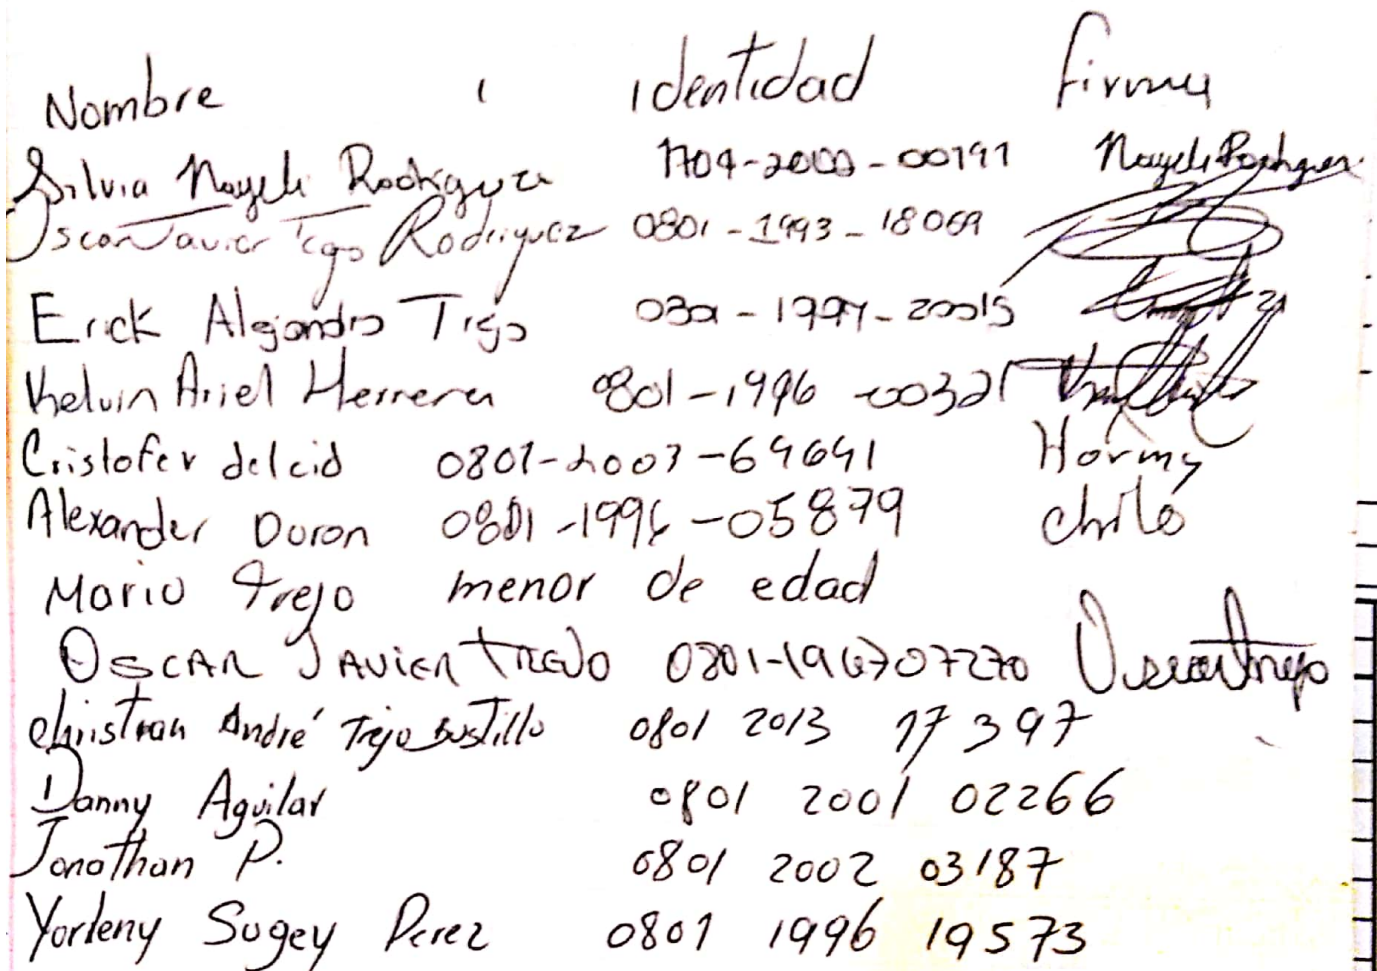 Nombre identidad firma
Silvia Nayeli Rodriguez 1704-2000-00191 Nayeli Rodriguez
Oscar Javier Rodriguez 0801-1993-18069
Erick Alejandro 20015
Kelvin Ariel Herrera 0801-1996
Cristofer del cid 0801-2003-69691
Alexander Duron 0801-1996-05879
Mario Trejo menor de edad
OSCAR JAVIER TREJO 0801-196707270 Oscar Trejo
Christian André Trejo Bustillo 0801 2013 17397
Danny Aguilar 0801 2001 02266
Jonathan P. 0801 2002 03187
Yorleny Sugey Perez 0801 1996 19573